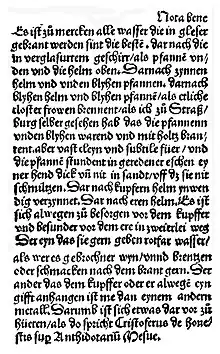 Nota bene
Es ist zů mercken alle wasser die in gleser
gebrant werden sint die beste. dar nach die
in verglasurtem geschirr/als pfanne vn̄
den vnd die helm oben. Darnach zynnen
helm vnd vnden blyhen pfannen. darnach
blyhen helm vnd blyhen pfanne/als etliche
closter frowen brennent/als ich zů Straß/
burg selber gesehen hab das die pfannen
vnden blyhen warend vnd mit holtz bran/
tent. aber vast kleyn vnd subtile füer/vnd
die pfanne stundent in geredener eschen ey
ner hend dick vn̄ nit in sandt/vff dz sie nit
schmültzen. Dar nach kupfern helm ynwen
dig verzynnet. Dar nach eren helm. Es ist
sich alwegen zů besorgen vor dem kupffer
vnd besunder vor dem ere in zweierlei weg
Der eyn das sie gern geben rotfar wasser/
als wer es gebrochner wyn/vnnd brentzen
oder schmacken nach dem brant gern. Der
ander das dem kupffer oder er alwegē eyn
gifft anhangen ist me dan eynem andern
metall. Darumb ist sich etwas dar vor zů
hüeten/als do spricht Cristoferus de hone/
stis sup Anthidotariū Mesue.